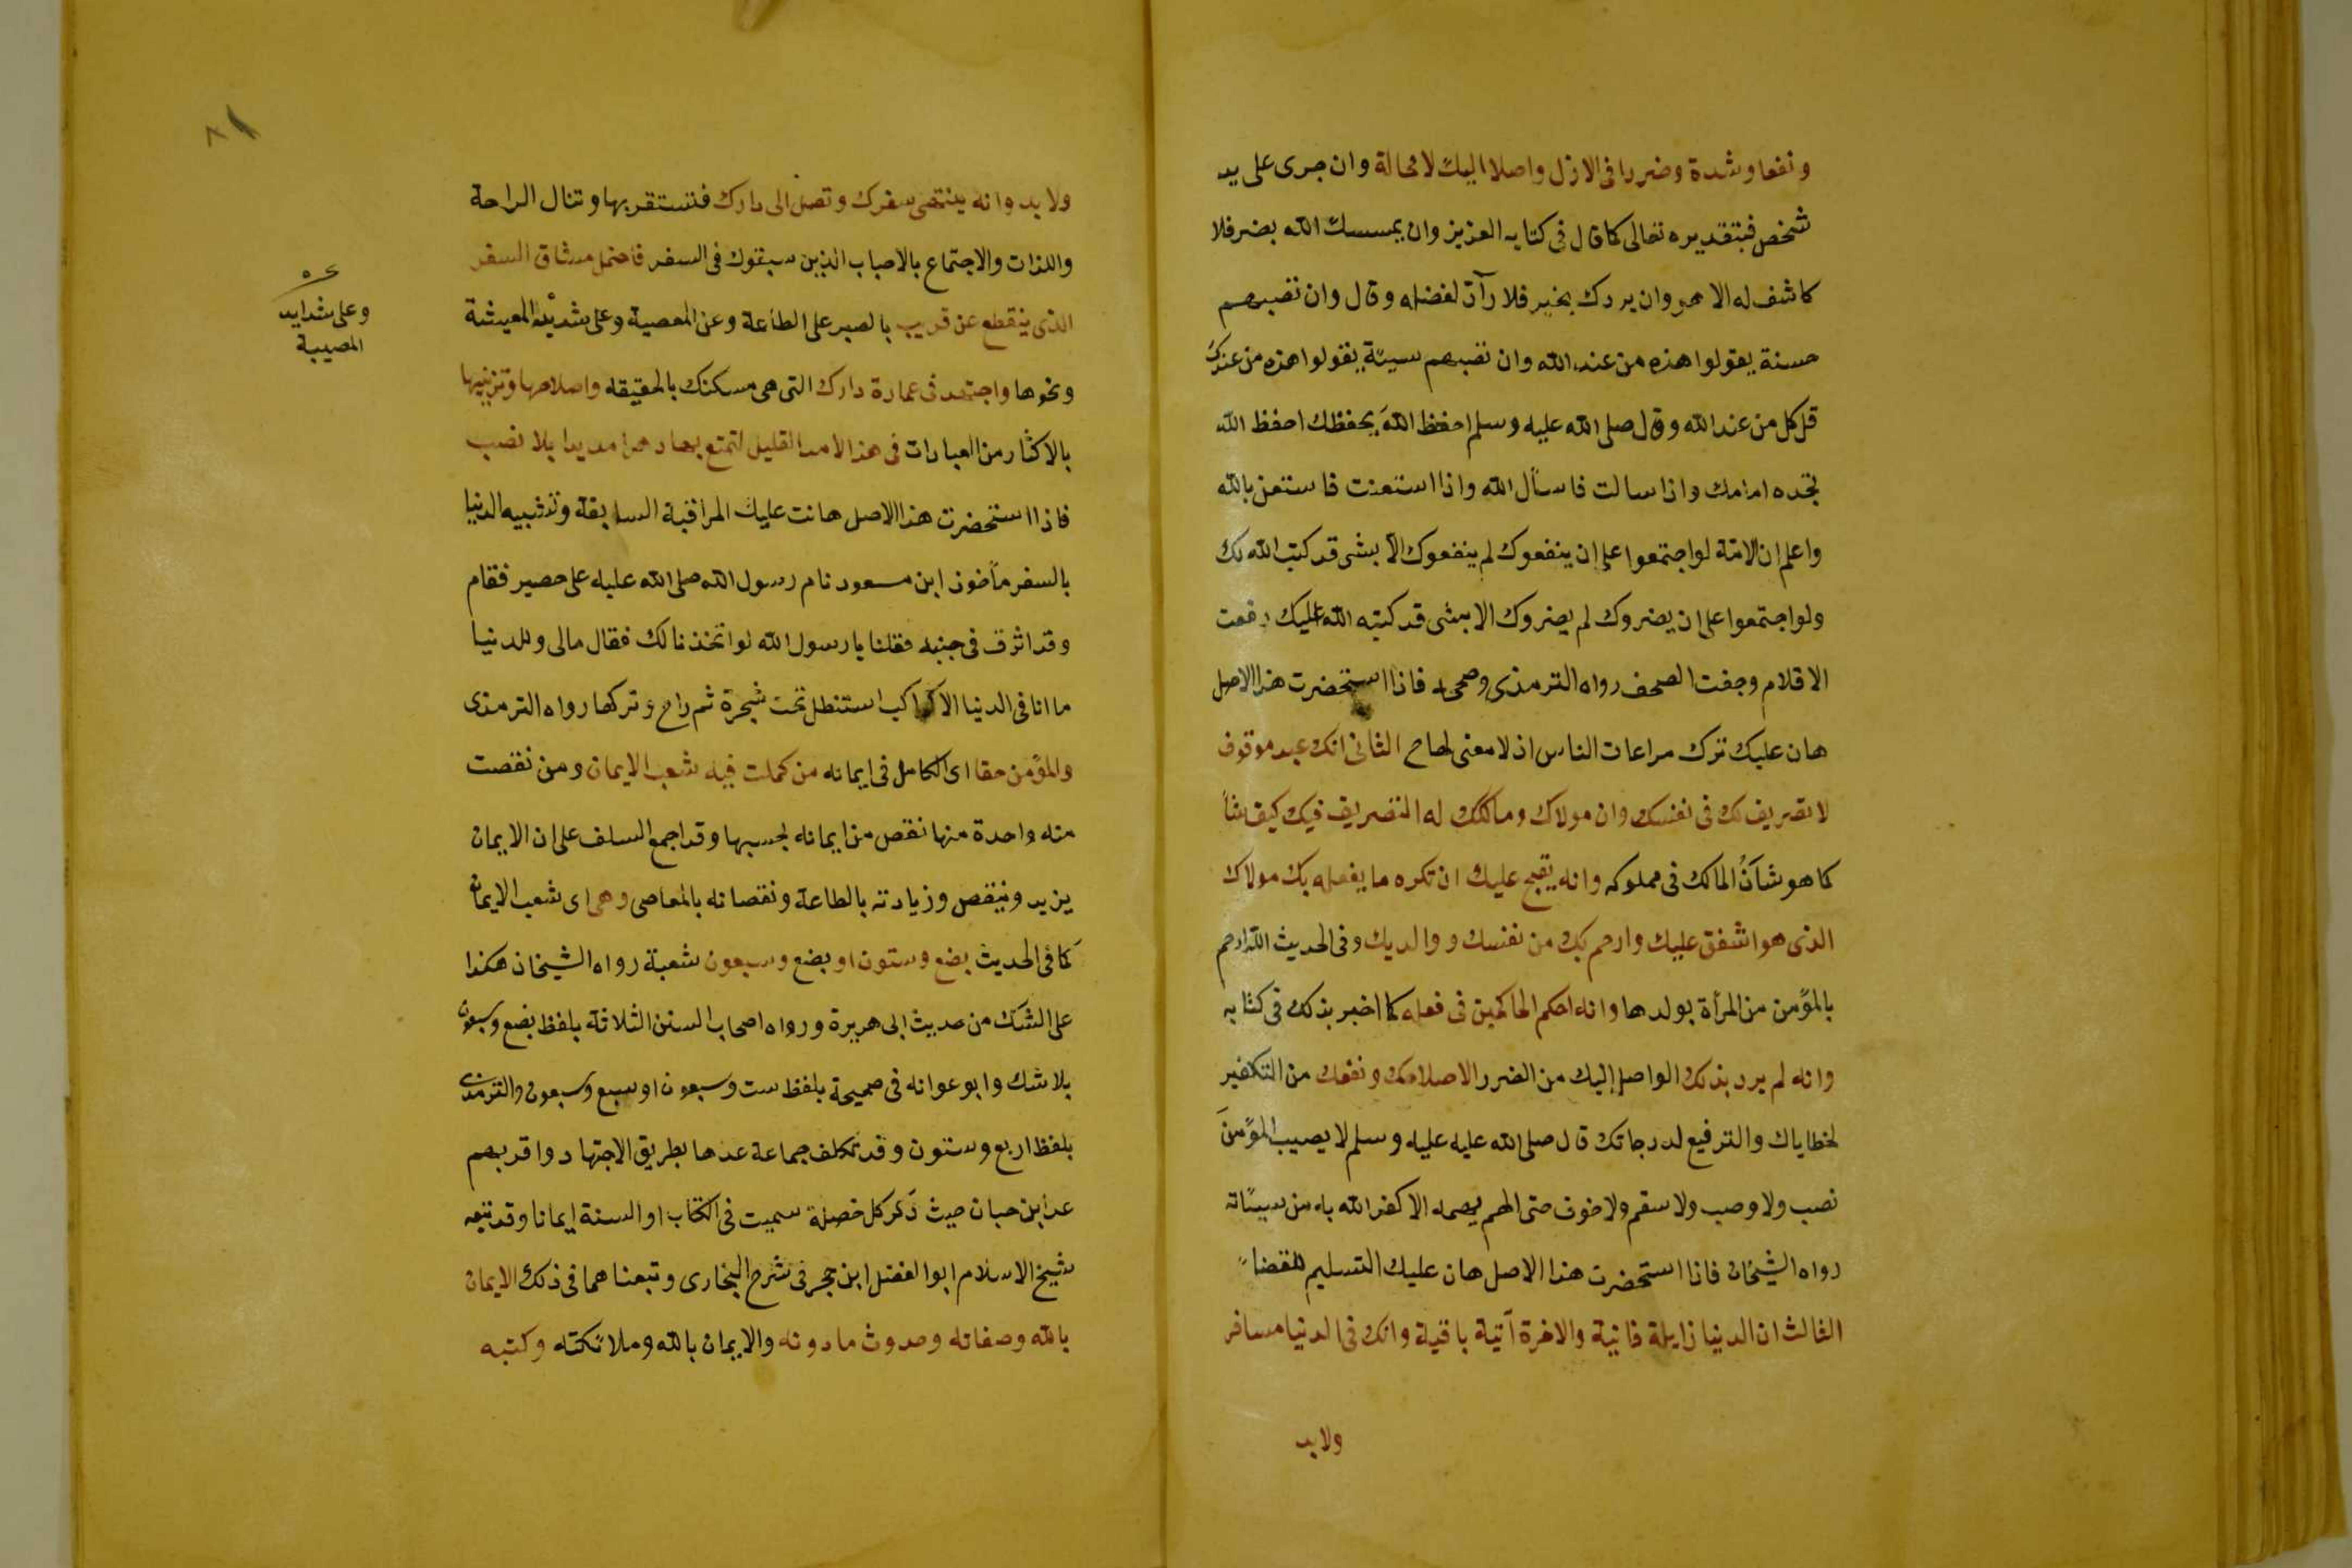 ونفعا وشدة وضررا فى الازل واصلا اليك لا محالة وان جرى على يد
شخص فبتقديره تعالى كما قال فى كتابه العزيز وان يمسسك الله بضر فلا
كاشف له الا هو وان يردك بخير فلا رآدّ لفضله وقال وان تصبهم
حسنة يقولوا هذه من عند الله وان تصبهم سيئة يقولوا هذه من عندك
قل كل من عند الله وقال صلى الله عليه وسلم احفظ اللهَ يحفظك احفظ الله
تجده امامك واذا سالت فاسأل الله واذا استعنت فاستعن بالله
واعلم ان الامّة لو اجتمعوا على ان ينفعوك لم ينفعوك الّا بشى قد كتب الله لك
ولو اجتمعوا على ان يضروك لم يضروك الا بشى قد كتبه الله عليك رفعت
الاقلام وجفت الصحف رواه الترمذى وصححه فاذا استحضرت هذا الاصل
هان عليك ترك مراعات الناس اذ لا معنى لها ح الثانى انك عبد موقوف
لا تصريف لك فى نفسك وان مولاك ومالكك له التصريف فيك كيف شأ
كما هو شأنُ المالك فى مملوكه وانه يقبح عليك ان تكره ما يفعله بك مولاك
الذى هو اشفق عليك وارحم بك من نفسك ووالديك وفى الحديث الله ارحم
بالمؤمن من المرأة بولدها وانه احكم الحاكمين فى فعله كما اخبر بذلك فى كتابه
وانه لم يرد بذلك الواصل اليك من الضرر الا صلاحك ونفعك من التكفير
لخطاياك والترفيع لدرجاتك قال صلى الله عليه عليه وسلم لا يصيب المؤمنَ
نصب ولا وصب ولا سقم ولا خوف حتى الهم يهمه الا كفر الله به من سيئاته
رواه الشيخان فاذا استحضرت هذا الاصل هان عليك التسليم للقضاء
الثالث ان الدنيا زايلة فانية والاخرة آتية باقية وانك فى الدنيا مسافر
ولابد
ولابد وانه ينتهى سفرك وتصل الى دارك فتستقر بها وتنال الراحة
واللذات والاجتماع بالاحباب الذين سبقوك فى السفر فاحتمل مشاق السفر
الذى ينقطع عن قريب بالصبر على الطاعة وعن المعصية وعلى شديد المعيشة
ونحوها واجتهد فى عمارة دارك التى هى مسكنك بالحقيقه واصلاحها وتزيينها
بالاكثار من العبادات فى هذا الامد القليل لتمتع بها دهرا مديدا بلا نصب
فاذا استحضرت هذا الاصل هانت عليك المراقبة السابقة وتشبيه الدنيا
بالسفر مأخوذ ابن مسعود نام رسول الله صلى الله عليه على حصير فقام
وقد اثر فى جنبه فقلنا يا رسول الله لو اتخذنا لك فقال مالى وللدنيا
ما انا فى الدنيا الا كراكب استظل تحت شجرة ثم راح وتركها رواه الترمذى
والمؤمن حقا اى الكامل فى ايمانه من كملت فيه شعب الايمان ومن نقصت
منه واحدة منها نقص من ايمانه بحسبها وقد اجمع السلف على ان الايمان
يزيد وينقص وزيادته بالطاعة ونقصانه بالمعاصى وهى اى شعب الايمان
كما فى الحديث بضع وستون او بضع وسبعون شعبة رواه الشيخان هكذا
على الشك من حديث ابى هريرة ورواه اصحاب السنن الثلاثة بلفظ بضع وسبعون
بلا شك وابو عوانه فى صحيحة بلفظ ست وسبعون او سبع وسبعون والترمذى
بلفظ اربع وستون وقد تكلف جماعة عدها بطريق الاجتهاد واقربهم
عد ابن حبان حيث ذكر كل خصلة سميت فى الكتاب او السنة ايمانا وقد تبعه
شيخ الاسلام ابوا لفضل ابن حجر فى شرح البخارى وتبعناهما فى ذلك الايمان
بالله وصفاته وحدوث ما دونه والايمان بالله وملائكته وكتبه
وعلى شدايد
المصيبة